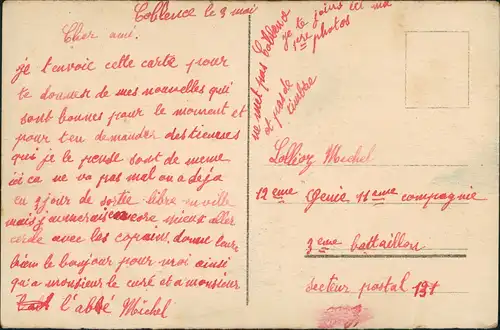 Coblence le 3 mai
Cher ami.
je t'envoie cette carte pour
te donner de mes nouvelles qui
sont bonnes pour le moment et
pour ten demander destiennes
qui je le pense sont de meme
ici ca ne va pas mal on a deja
en 9 jour de sortie libre en ville
mais j'aimerais encore mieux aller
avec les copains donne leur
bien le bonjour pour moi ainsi
qu'a monsieur le curé et a monsieur
l'abbé Michel
ne met pas Coblence
et pas de
timbre
je te joins ici ma
1ere photos
Lallioz Michel
12eme Genie 11eme compagnie
3eme battaillon
secteur postal 191